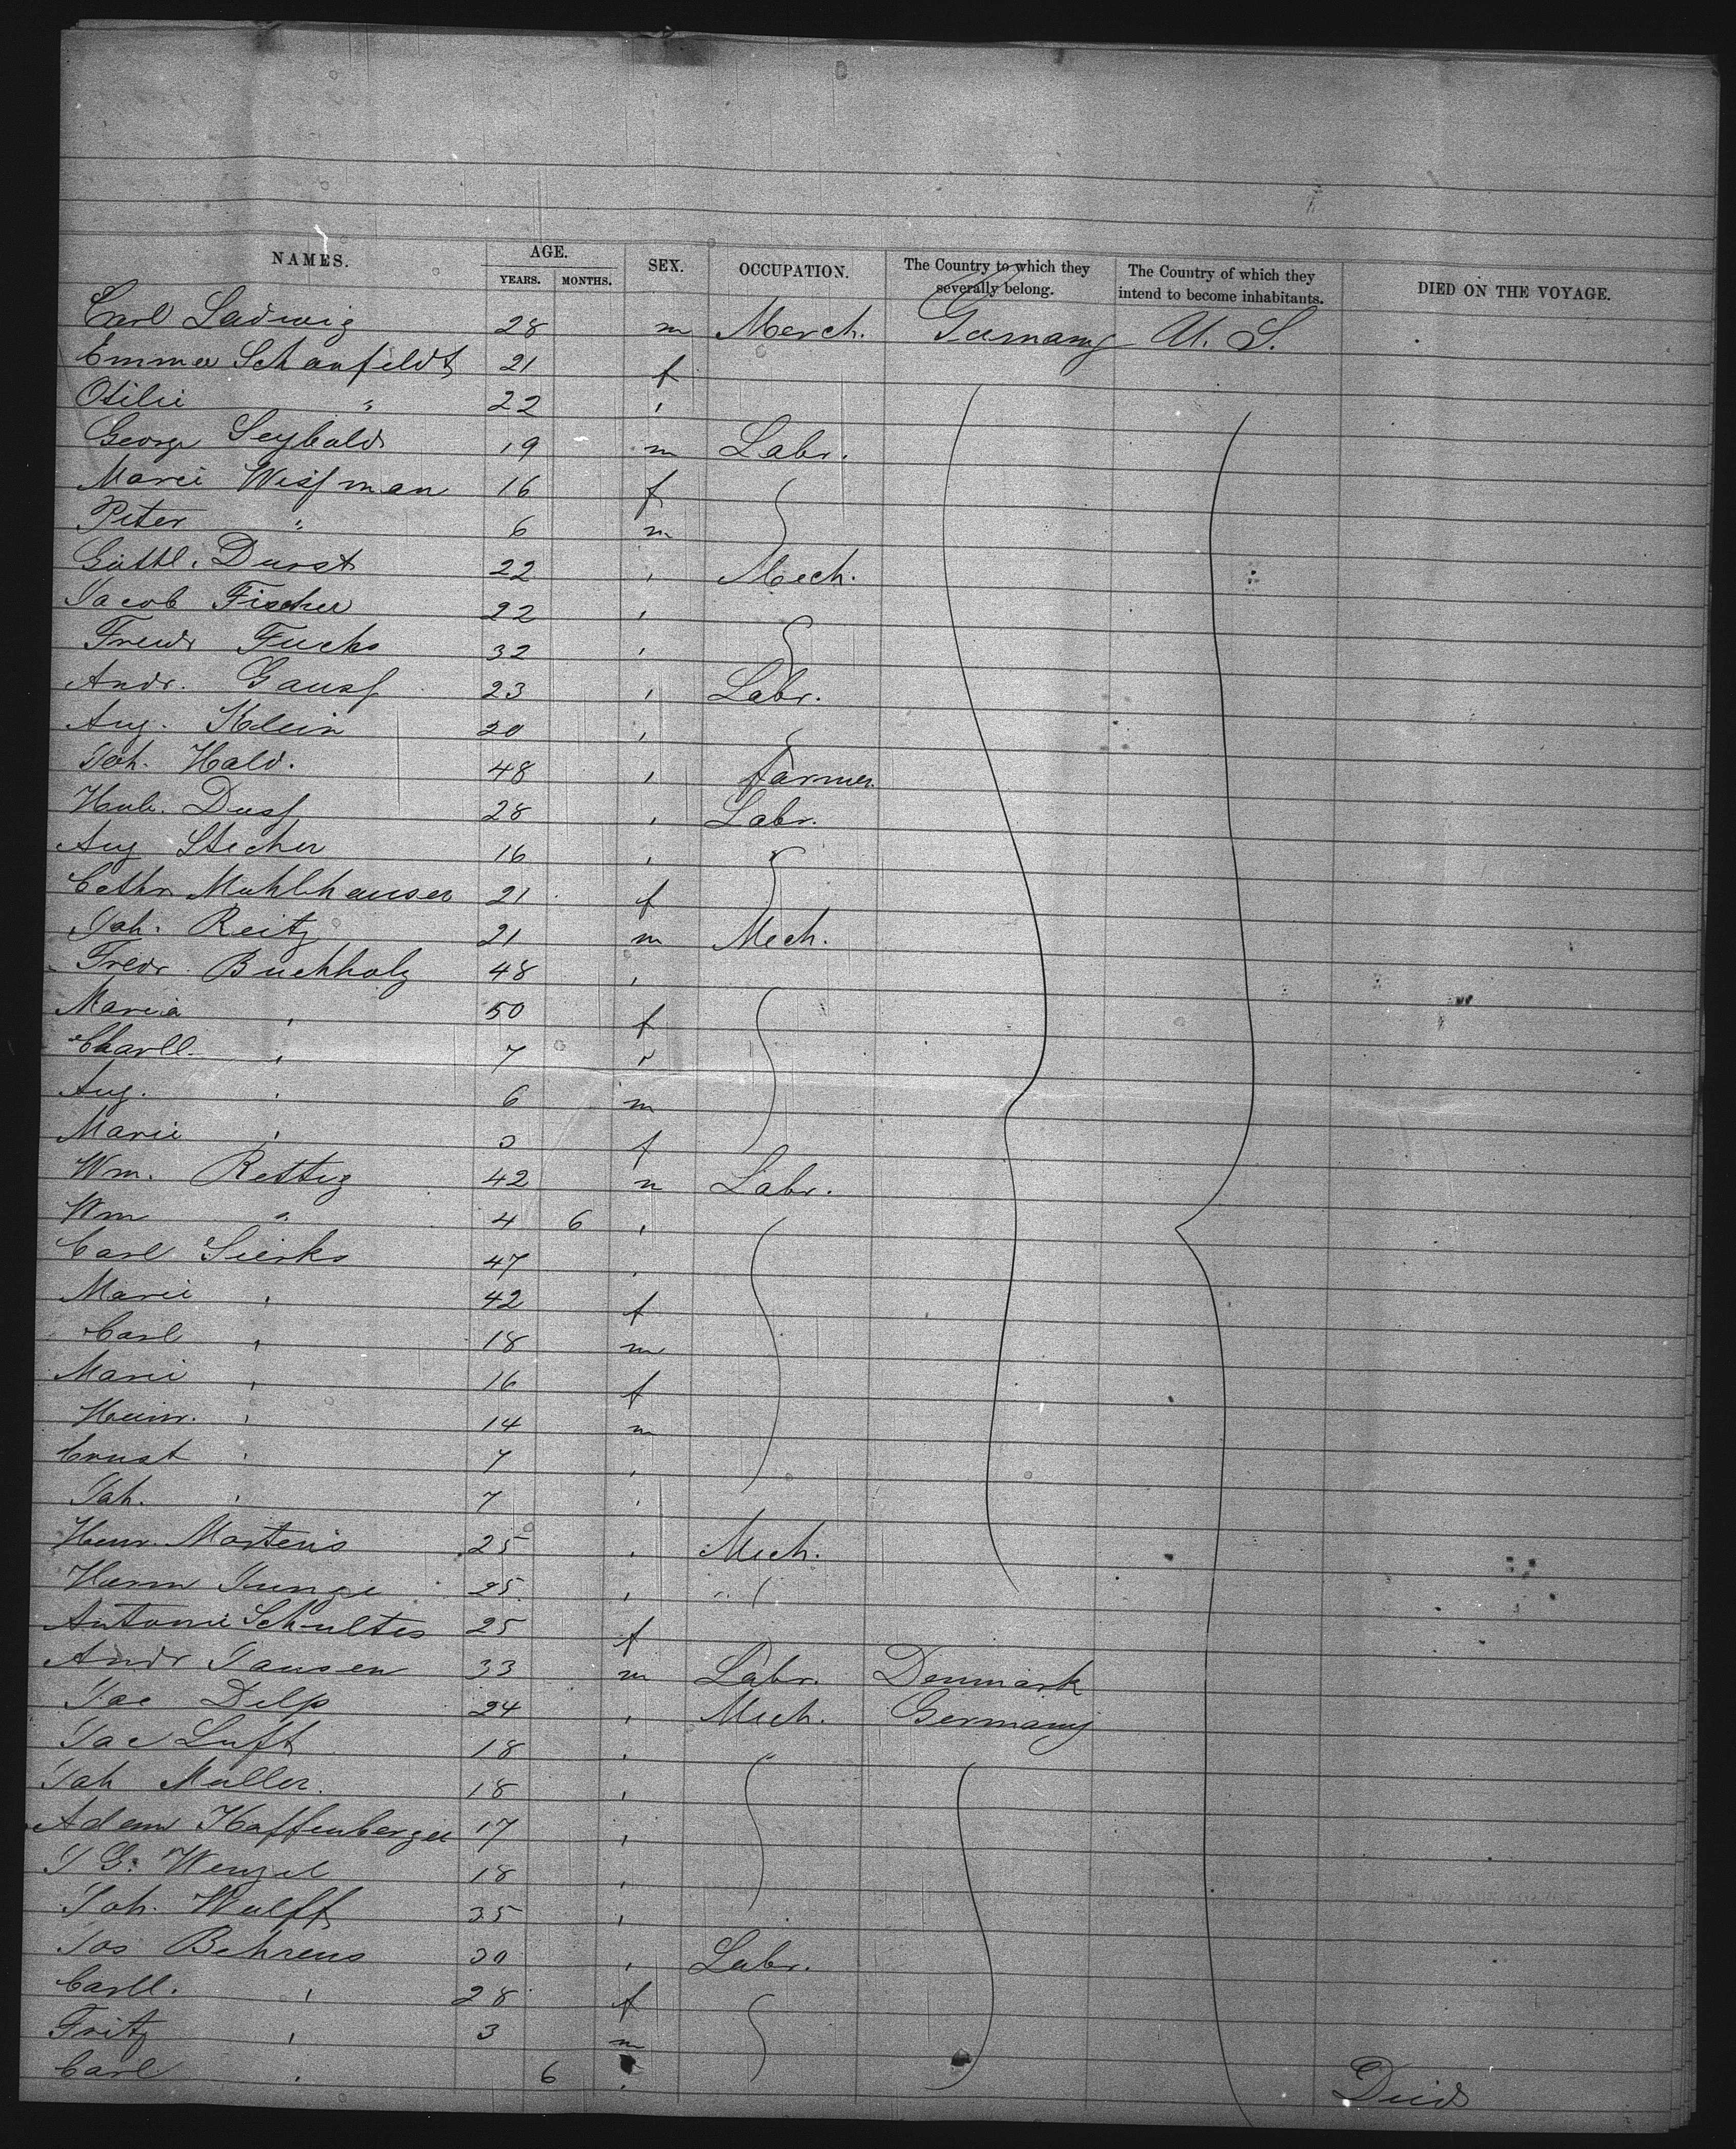 NAMES. AGE. SEX. OCCUPATION. The Country to which they severally belong. The Country of which they intend to become inhabitants. DIED ON THE VOYAGE.
YEARS. MONTHS.
Carl Ladwig 28 m Merch. Germany U. S.
Emma Schonfeldt 21 f
Otilie " 22 "
George Seybold 19 m Labr.
Marie Wissman 16 f
Peter " 6 m
Gottl. Durst 22 " Mech.
Jacob Fischer 22 "
Fredr Fuchs 32 "
Andr. Gauss 23 " Labr.
Aug. Klein 20 "
Joh. Hald. 48 " Farmer
Duss 28 " Labr.
Aug Stecher 16 "
Cathr Muhlhauser 21 f
Joh. Reitz 21 m Mech.
Fredr. Buchholz 48 "
Maria " 50 f
Charll. " 7 "
Aug. " 6 m
Marie " f
Wm. Rettig 42 m Labr.
Wm " 4 6 "
Carl Sierks 47 "
Marie " 42 f
Carl " 18 m
Marie " 16 f
Heinr. " 14 m
Ernst " 7 "
Joh. " 7 "
Heinr. Martens 25 " Mech.
Herm Junge 25 "
Antonie Schultes 25 f
Andr Jansen 33 m Labr. Denmark
Jac Delp 24 " Mech. Germany
Jac Luft 18 "
Joh Muller. 18 "
Adam Haffenberger 17 "
J G. Wenzel 18 "
Joh. Wulff 35 "
Jos Behrens 30 " Labr.
Carll. " 28 f
Fritz " 3 m
Carl " 6 " Died